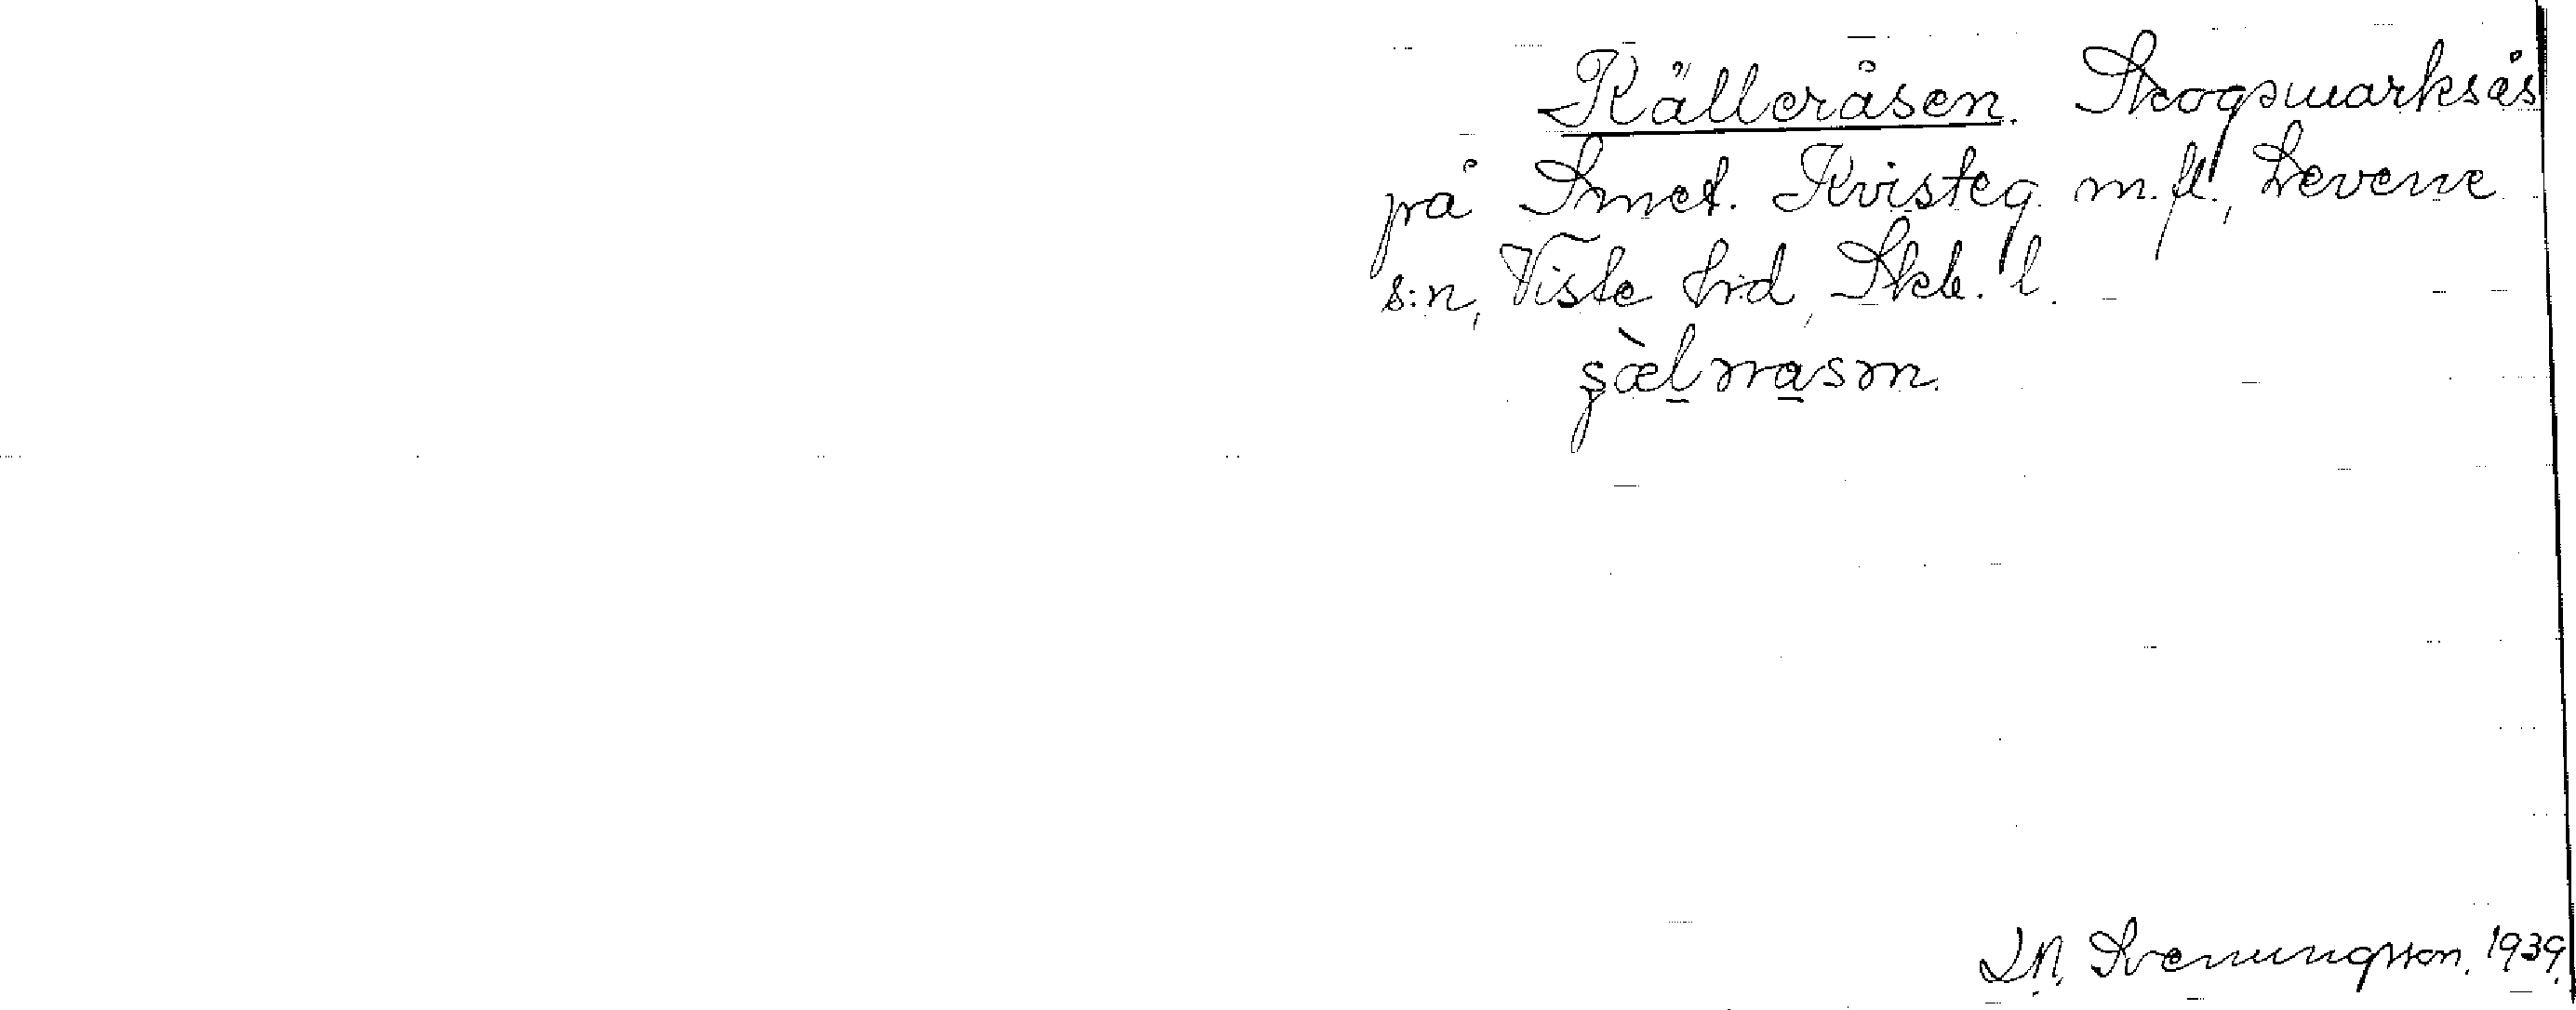 Källeråsen. Skogsmarksås
på Smet. Kvisteg. m.fl., Levene
s:n, Viste hrd, Skb. l.
D.N. Svenungsson. 1939.